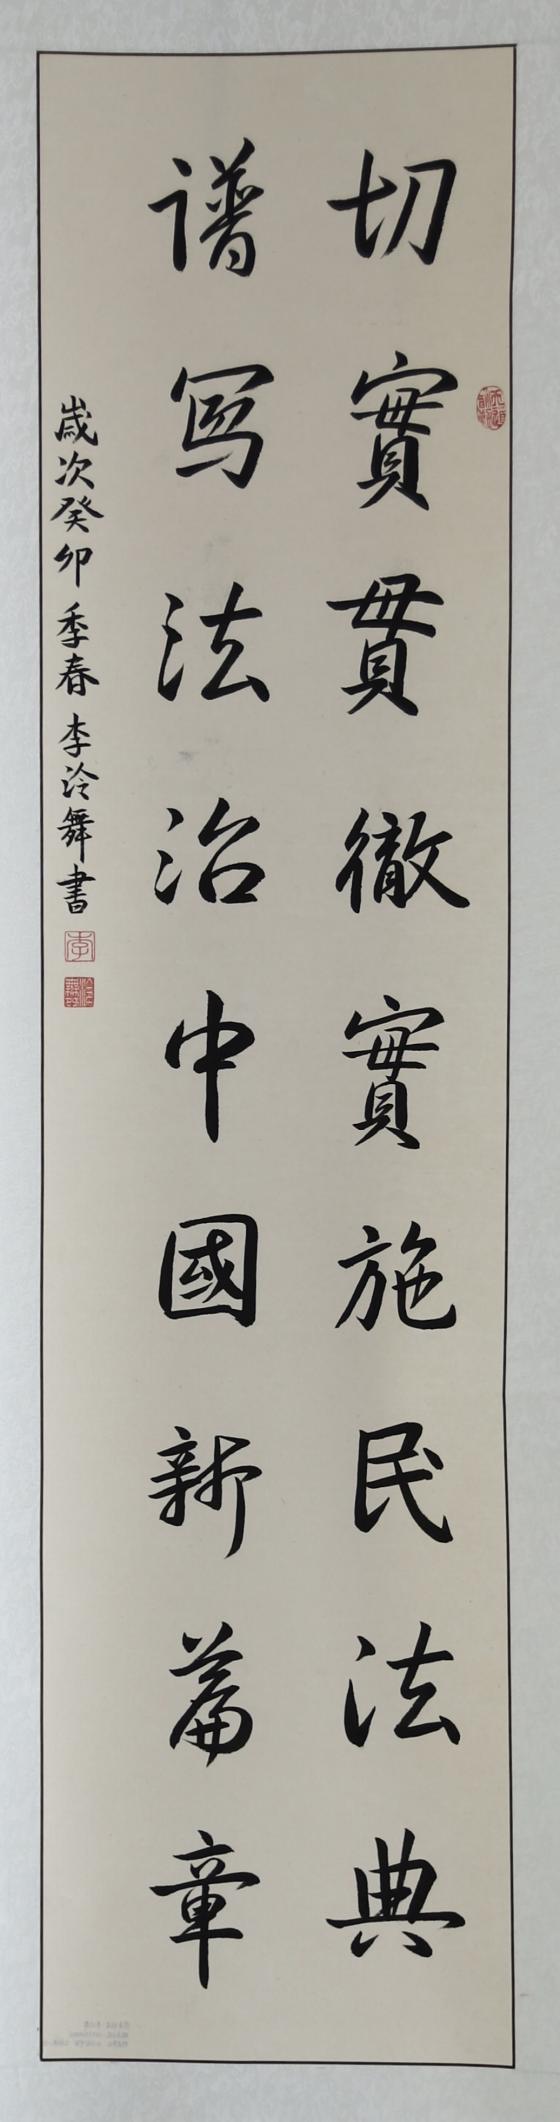 切實貫徹實施民法典
谱写法治中國新篇章
歲次癸卯季春李泠舞書
李